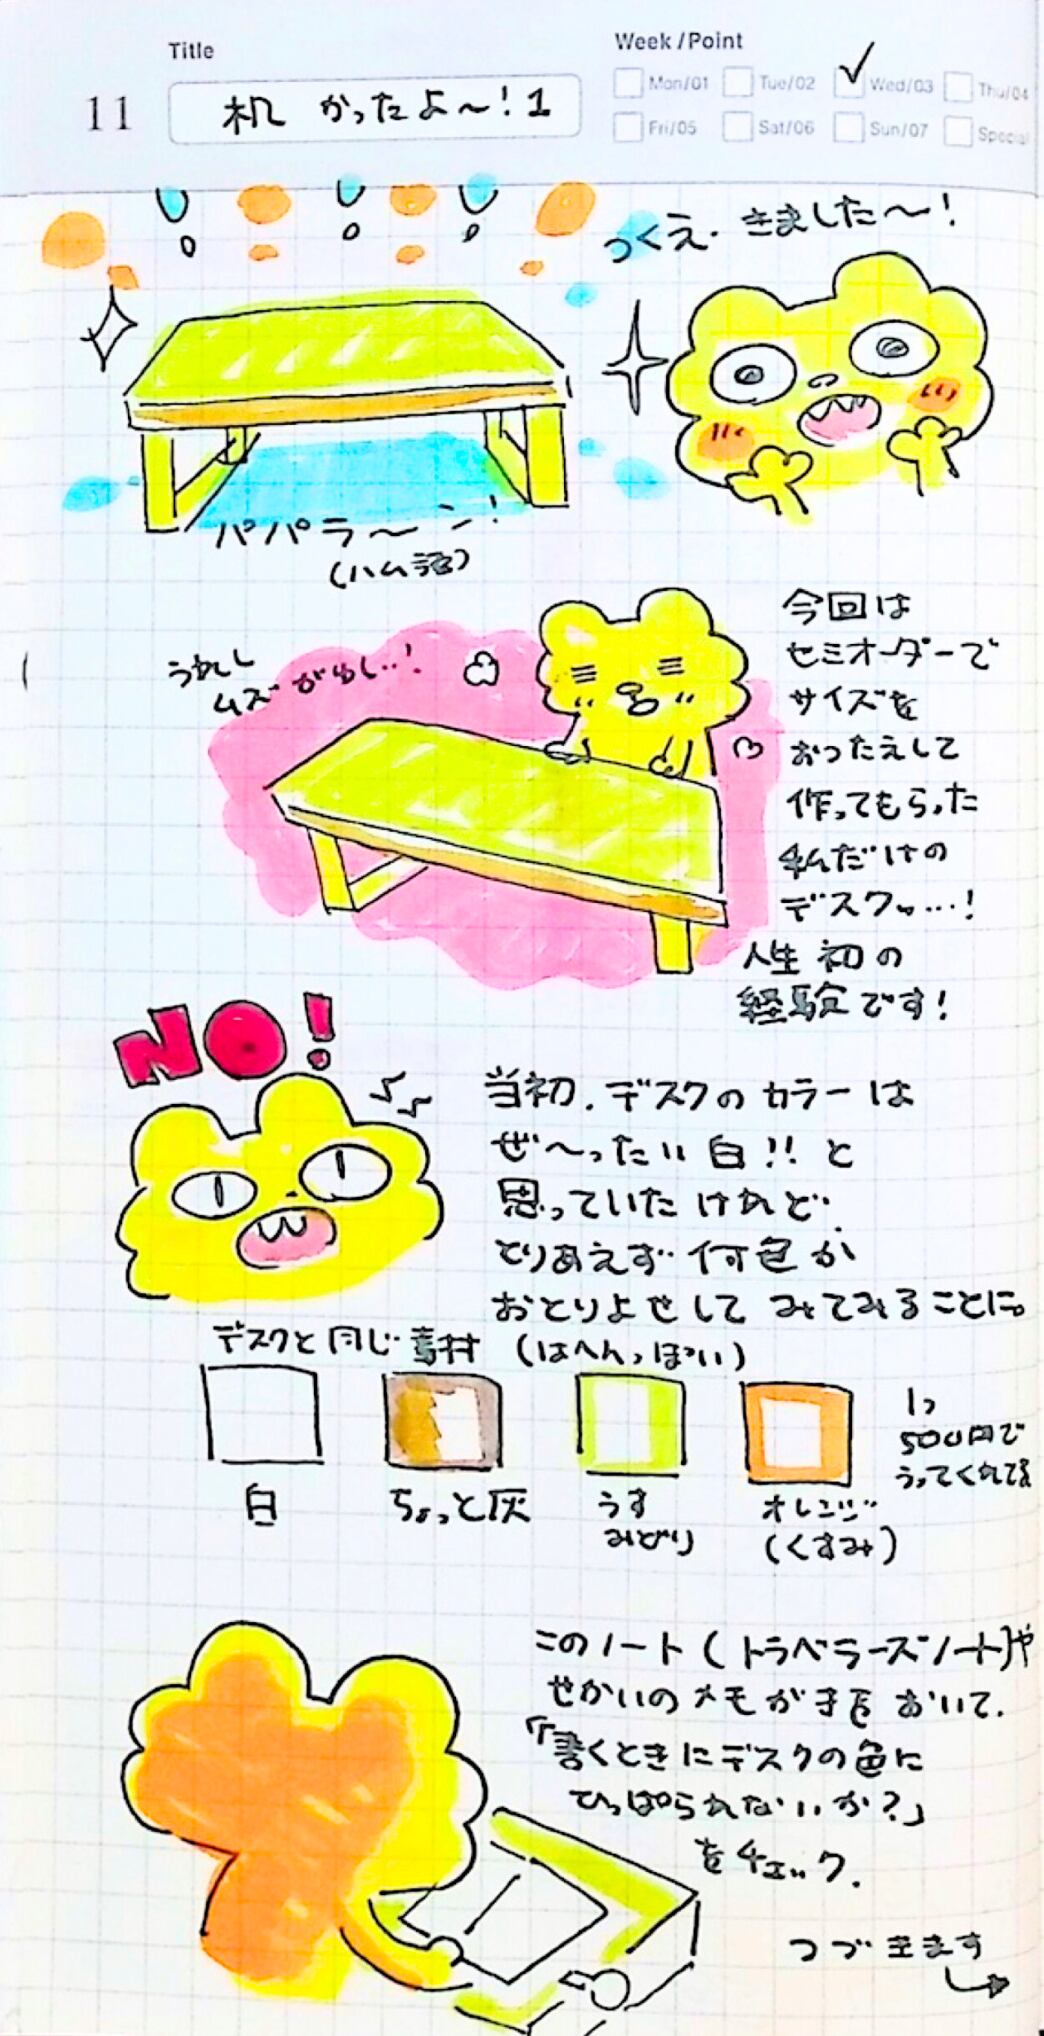 Title
Week/Point
11
机 かったよ〜!1
Mon/01
Tue/02
Wed/03
Thu/04
Fri/05
Sat/06
Sun/07
Special
つくえ、きました〜!
パパラ〜ン!
(ハム語)
うれし
ムズがゆし…!
今回は
セミオーダーで
サイズを
おつたえして
作ってもらった
私だけの
デスクッ…!
人生初の
経験です!
NO!
当初、デスクのカラーは
ぜ〜ったい白!!と
思っていたけれど、
とりあえず何色か
おとりよせしてみてみることに。
デスクと同じ素材 (はへんっぽい)
白
ちょっと灰
うす
みどり
オレンジ
(くすみ)
1つ
500円で
うってくれてる
このノート(トラベラーズノート)や
せかいのメモが洋をおいて、
「書くときにデスクの色に
ひっぱられないか?」
をチェック。
つづきます